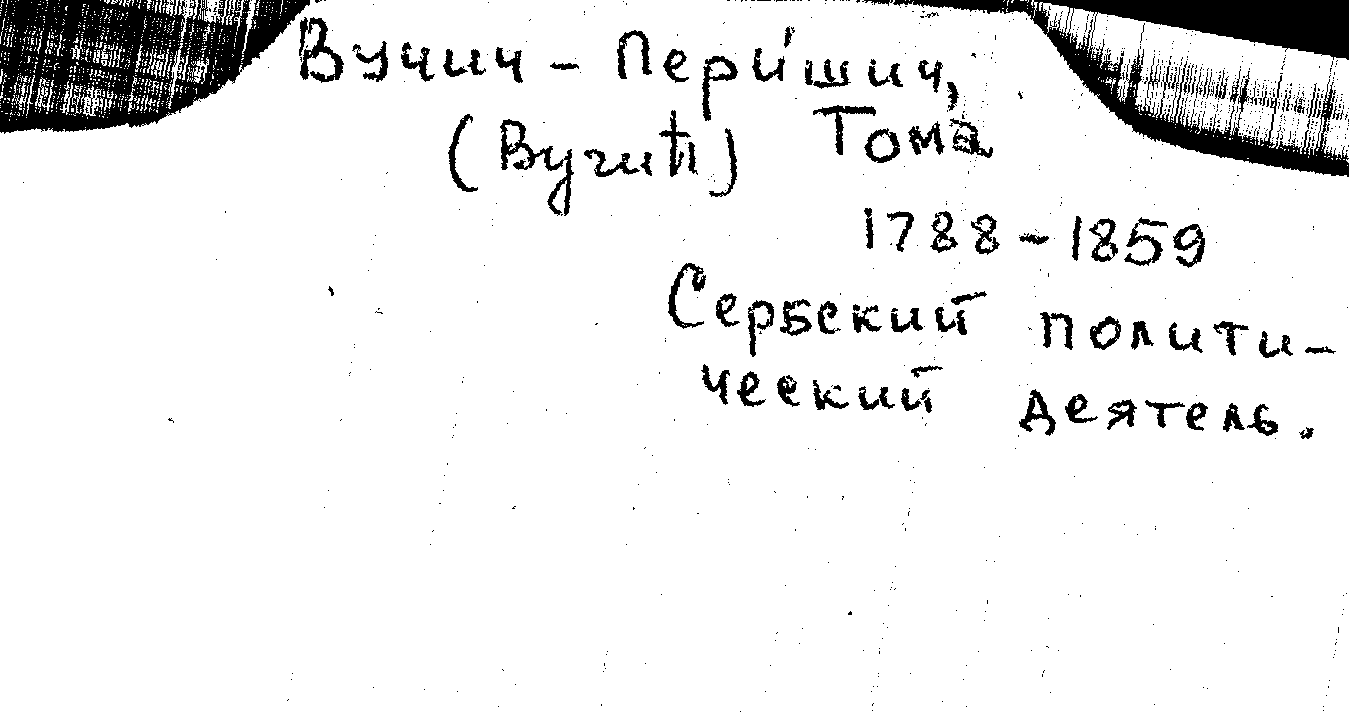 Вучич - Пери́шич,
(Вучић) Тома
1788 - 1859
Сербский полити-
ческий деятель.